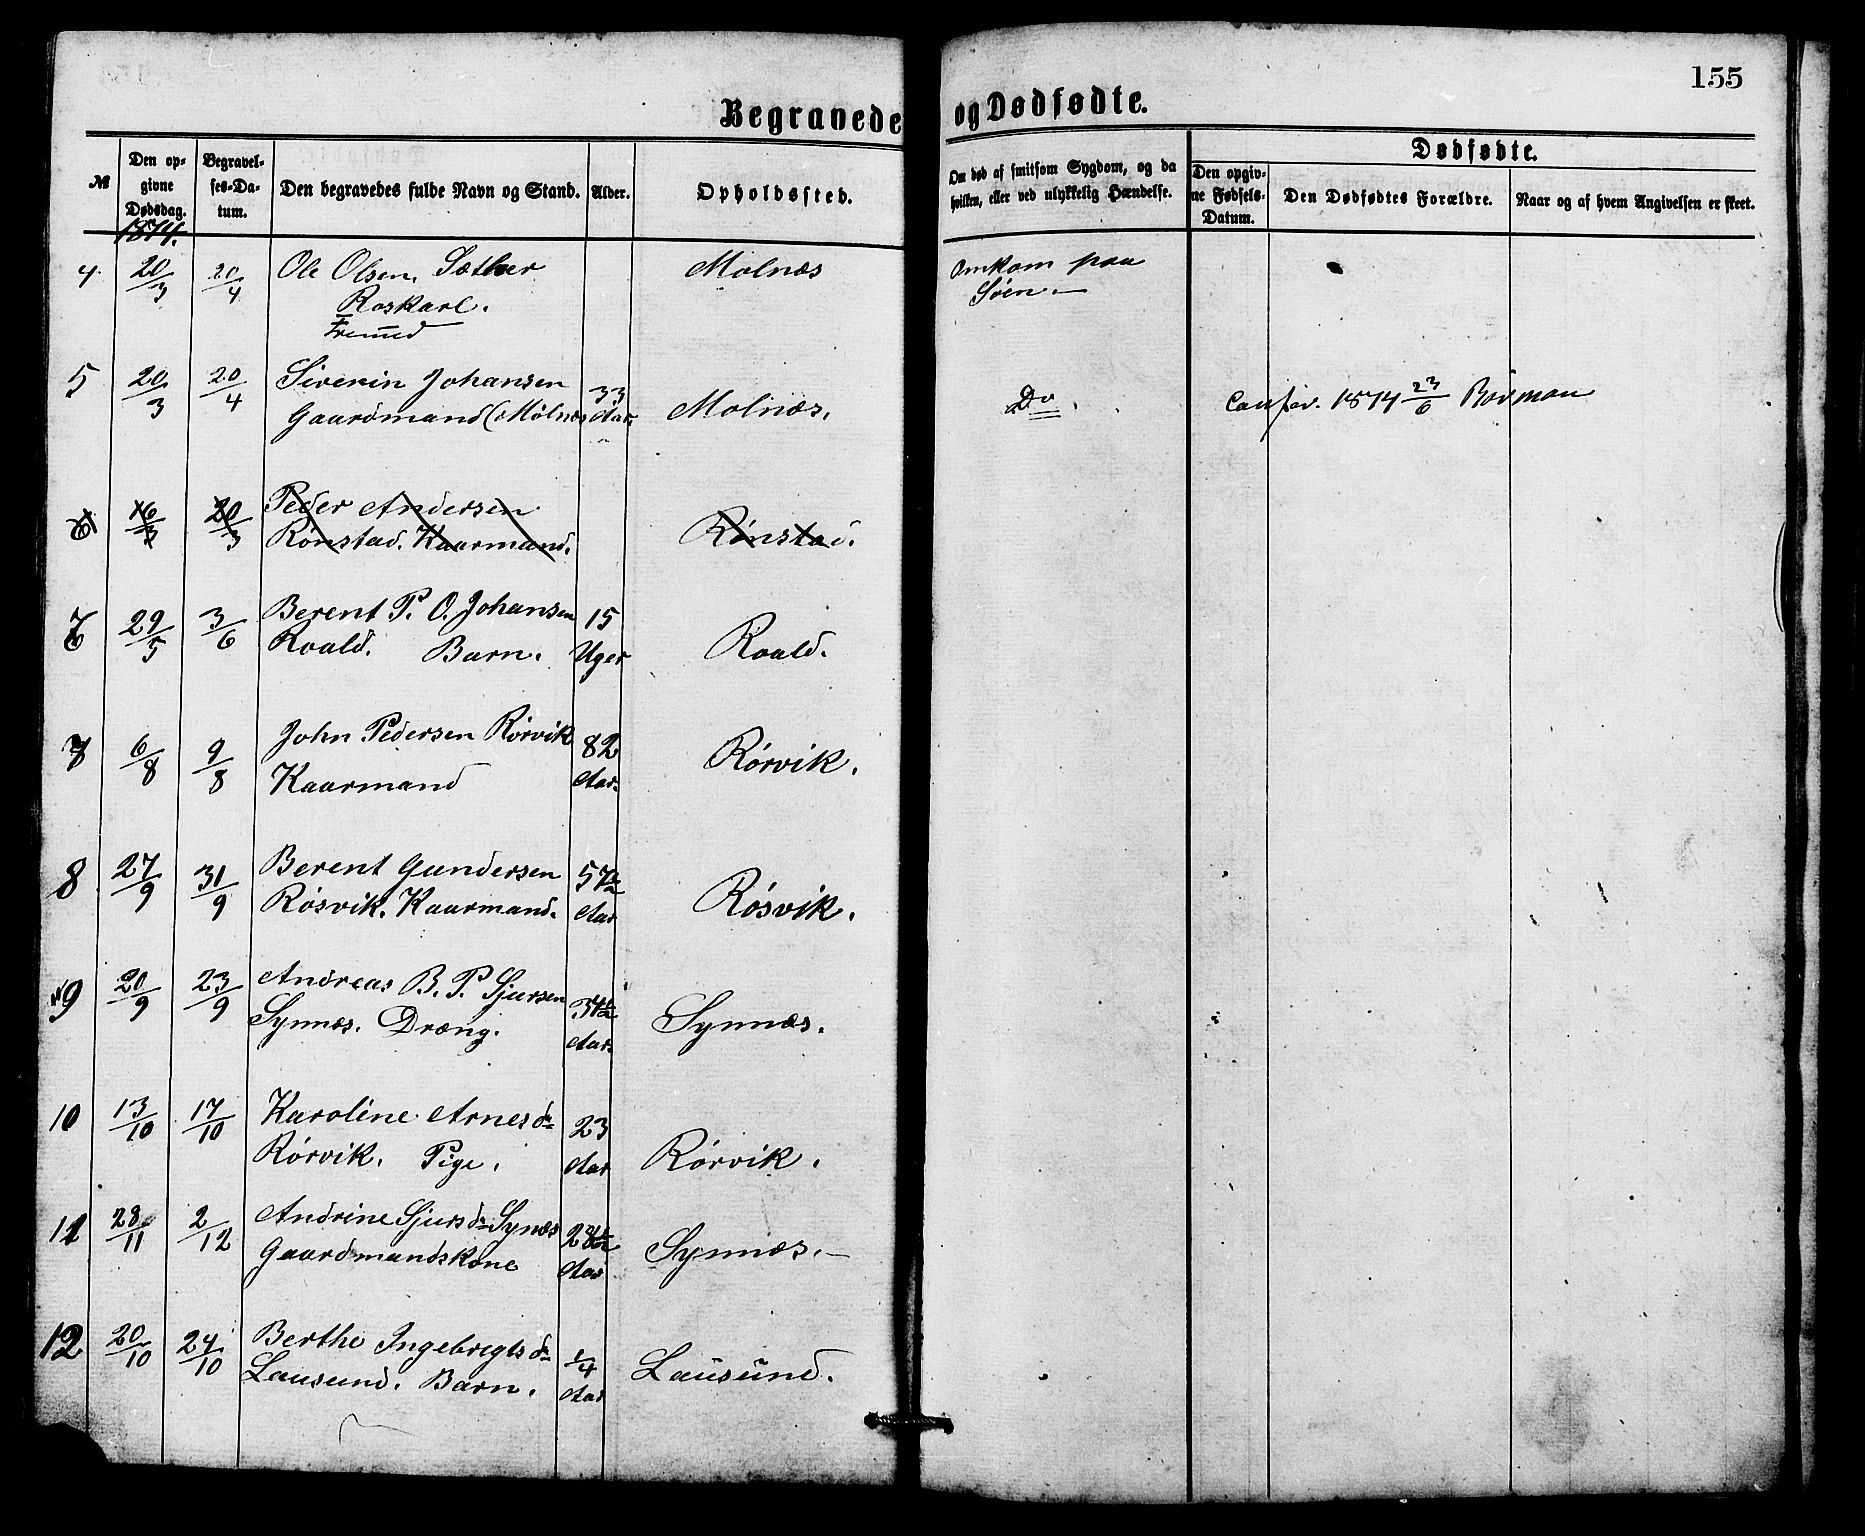 155
Begravede og Dødfødte.
№
Den opgivne Dødsdag.
Begravelses-Datum.
Den begravedes fulde Navn og Stand.
Alder.
Opholdssted.
Om død af smitsom Sygdom, og da hvilken, eller ved ulykkelig Hændelse.
Dødfødte.
Den opgivne Fødsels-Datum.
Den Dødfødtes Forældre.
Naar og af hvem Angivelsen er skeet.
1874.
4 20/3 20/4 Ole Olsen Sæther Molnæs Omkom paa
Roskarl. Søen.
Fremed
5 20/3 20/4 Siverin Johansen 33
Gaardmand (Mølnæs Aar. Molnæs. Do. Confer. 1874 23/6
6 16/3 20/3 Peder Andersen
Rønstad. Kaarmand. Rønstad.
6 29/5 3/6 Berent P. O. Johansen 15
Roald. Barn. Uger Roald.
7 6/8 9/8 John Pedersen Rørvik 82 Rørvik.
Kaarmand Aar.
8 27/9 31/9 Berent Gundersen 57½
Røsvik. Kaarmand. Aar Røsvik.
9 20/9 23/9 Andreas B. P. Sjursen
Synnæs. Dræng. Aar. Synnæs.
10 13/10 17/10 Karoline Arnesd. 23
Rørvik. Pige. Aar Rørvik.
11 28/11 2/12 Andrine Sjursd. Synæs 28½
Gaardmandskone Aar Synnæs.
12 20/10 24/10 Berthe Ingebrigtsd. ¼
Lausund. Barn. Aar Lausund.